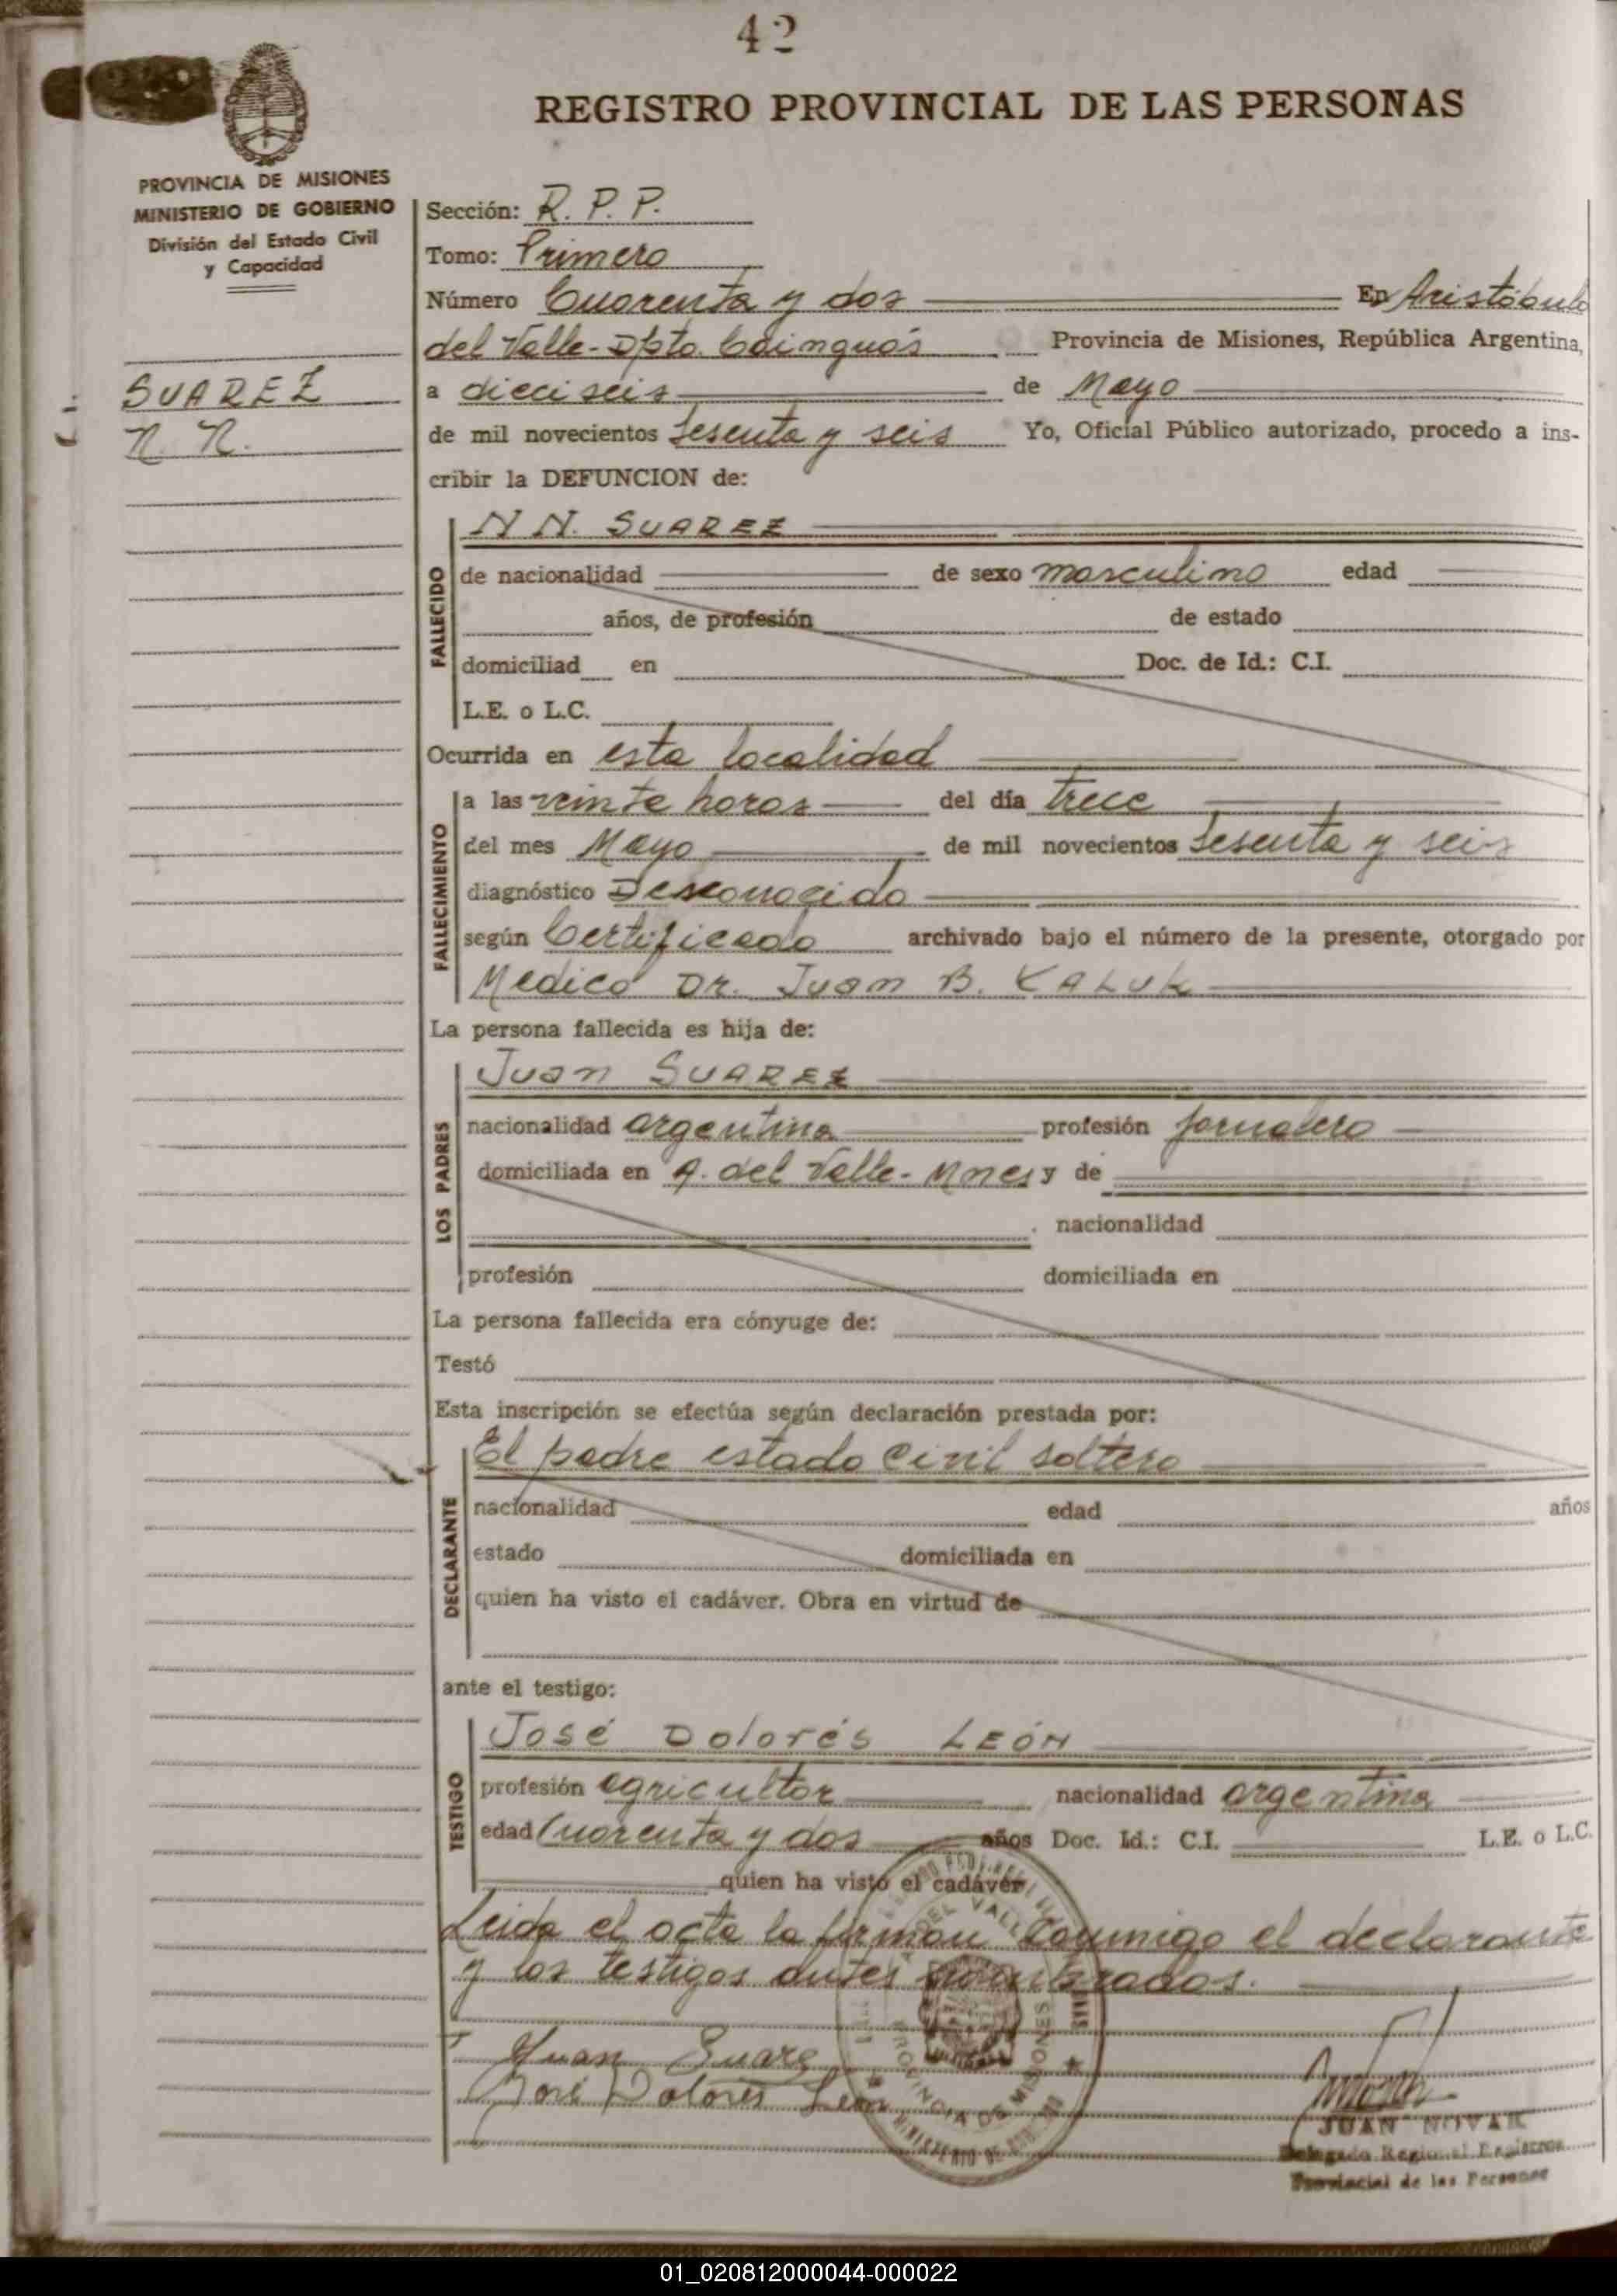 42
REGISTRO PROVINCIAL DE LAS PERSONAS
PROVINCIA DE MISIONES
MINISTERIO DE GOBIERNO
División del Estado Civil
y Capacidad
SUAREZ
N. N.
Sección: R. P. P.
Tomo: Primero
Número Cuarenta y dos En Aristóbulo
del Valle - Dpto. Cainguás Provincia de Misiones, República Argentina,
a dieciseis de Mayo
de mil novecientos Sesenta y seis Yo, Oficial Público autorizado, procedo a ins-
cribir la DEFUNCION de:
FALLECIDO
N N. SUAREZ
de nacionalidad de sexo masculino edad
años, de profesión de estado
domiciliad en Doc. de Id.: C.I.
L.E. o L.C.
Ocurrida en esta localidad
FALLECIMIENTO
a las veinte horas del día trece
del mes Mayo de mil novecientos Sesenta y seis
diagnóstico Desconocido
según Certificado archivado bajo el número de la presente, otorgado por
Medico Dr. Juan B. KALUK
La persona fallecida es hija de:
LOS PADRES
Juan SUAREZ
nacionalidad argentina profesión jornalero
domiciliada en A. del Valle - Mnes y de
nacionalidad
profesión domiciliada en
La persona fallecida era cónyuge de:
Testó
Esta inscripción se efectúa según declaración prestada por:
DECLARANTE
El padre estado Civil soltero
nacionalidad edad años
estado domiciliada en
quien ha visto el cadáver. Obra en virtud de
ante el testigo:
TESTIGO
José Dolorés LEÓN
profesión agricultor nacionalidad argentina
edad Cuarenta y dos años Doc. Id.: C.I. L.E. o L.C.
quien ha visto el cadáver
Leida el acta la firman Conmigo el declarante
y los testigos antes nombrados.
Juan Suarez
José Dolores León
DEL VALLE
PROVINCIA DE MISIONES
JUAN NOVAK
Delegado Regional Registro
Provincial de las Personas
01_020812000044-000022